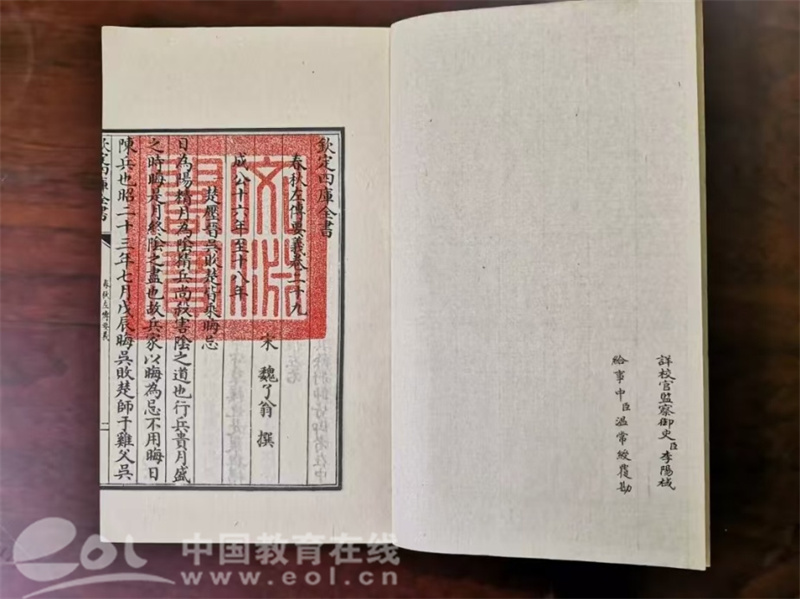 詳校官監察御史臣李陽棫
給事中臣温常綬覆勘
欽定四庫全書
春秋左傳要義卷二十九
宋 魏了翁 撰
成公十六年至十八年
楚壓晉吳敗楚皆乘晦忌
日為陽精月為陰精兵尚殺害陰之道也行兵貴月盛
之時晦是月終陰之盡也故兵家以晦為忌不用晦日
陳兵也昭二十三年七月戊辰晦吳敗楚師于雞父吳
欽定四庫全書
春秋左傳要義
二
文淵
閣寶
eol 中国教育在线
www.eol.cn